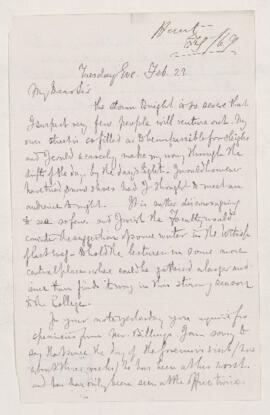 Hunt
Tuesday Eve. Feb. 22
My Dear Sir
the storm tonight is so severe that
I suspect very few people will venture out. My
own street is so filled as to be impassible for sleighs
and I could scarcely make my way through the
drifts of the day, by the day's light. I would however
have tried snow shoes had I thought to meet an
audience tonight. It is rather discouraging
to see so few and I wish the Faculty would
consider the suggestion of some writer in the
of last to hold the lectures in some more
central place where could be gathered a larger
than find its way in this stormy season
to the College.
In your note yesterday you inquire for
specimens from Mr. Billings. I am sorry to
say that since the day of the Governor's visit
he has been at his worst
and has only been seen at the office twice.